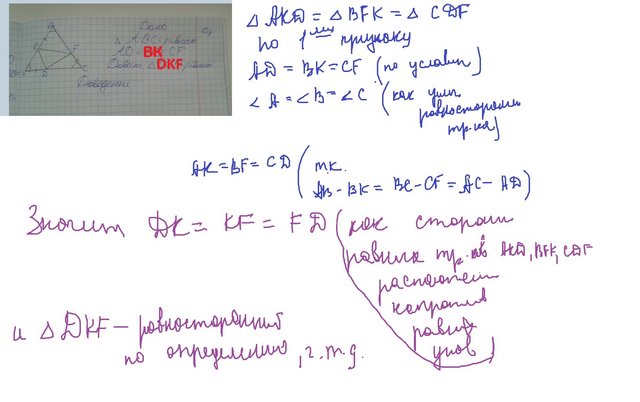 Дано
△ ABC равност
AD = BK = CF
Доказать △ DKF равност
△ AKD = △ BFK = △ CDF
по 1ому признаку
AD = BK = CF (по условию)
∠A = ∠B = ∠C (как углы
равносторонн
тр-ка)
AK = BF = CD (т.к.
AB - BK = BC - CF = AC - AD)
Значит DK = KF = FD (как стороны
равных тр-ков AKD, BFK, CDF
напротив
равных
углов)
и △ DKF - равносторонний
по определению, ч.т.д.